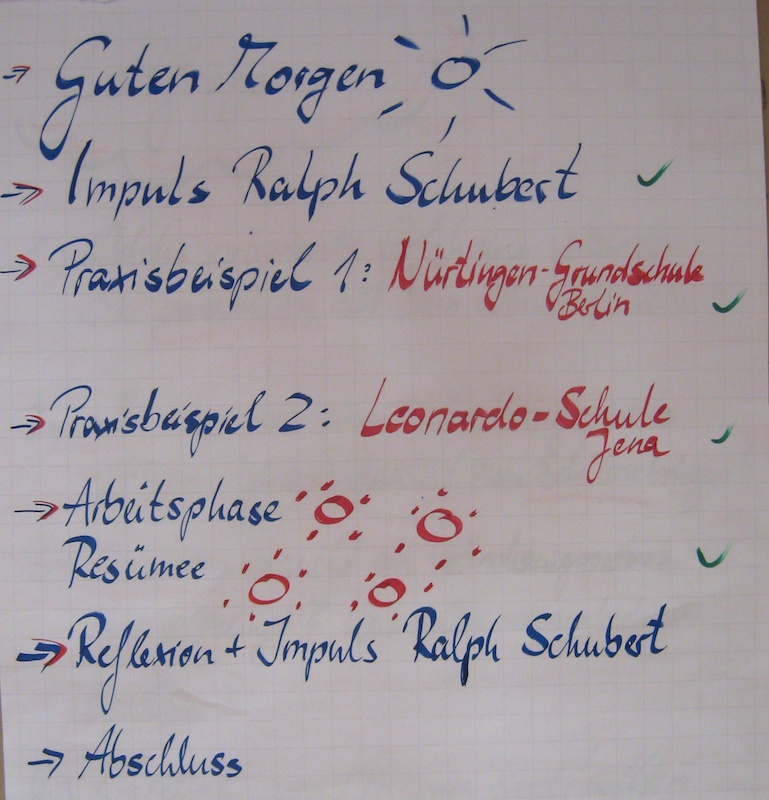 → Guten Morgen
→ Impuls Ralph Schubert ✓
→ Praxisbeispiel 1: Nürtingen-Grundschule
Berlin ✓
→ Praxisbeispiel 2: Leonardo-Schule
Jena ✓
→ Arbeitsphase
Resümee ✓
→ Reflexion + Impuls Ralph Schubert
→ Abschluss